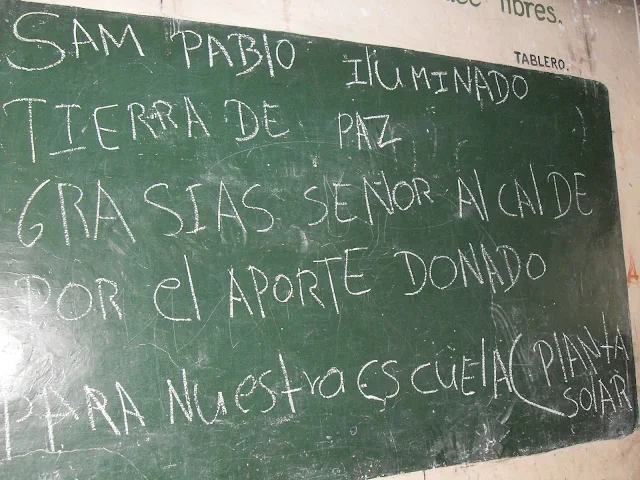 libres.
TABLERO.
SAM PABLO ILUMINADO
TIERRA DE PAZ
GRASIAS SEÑOR AlCAlDE
POR el APORTE DONADO
PARA NuestraEScuElA( PlANtA
SOlAR